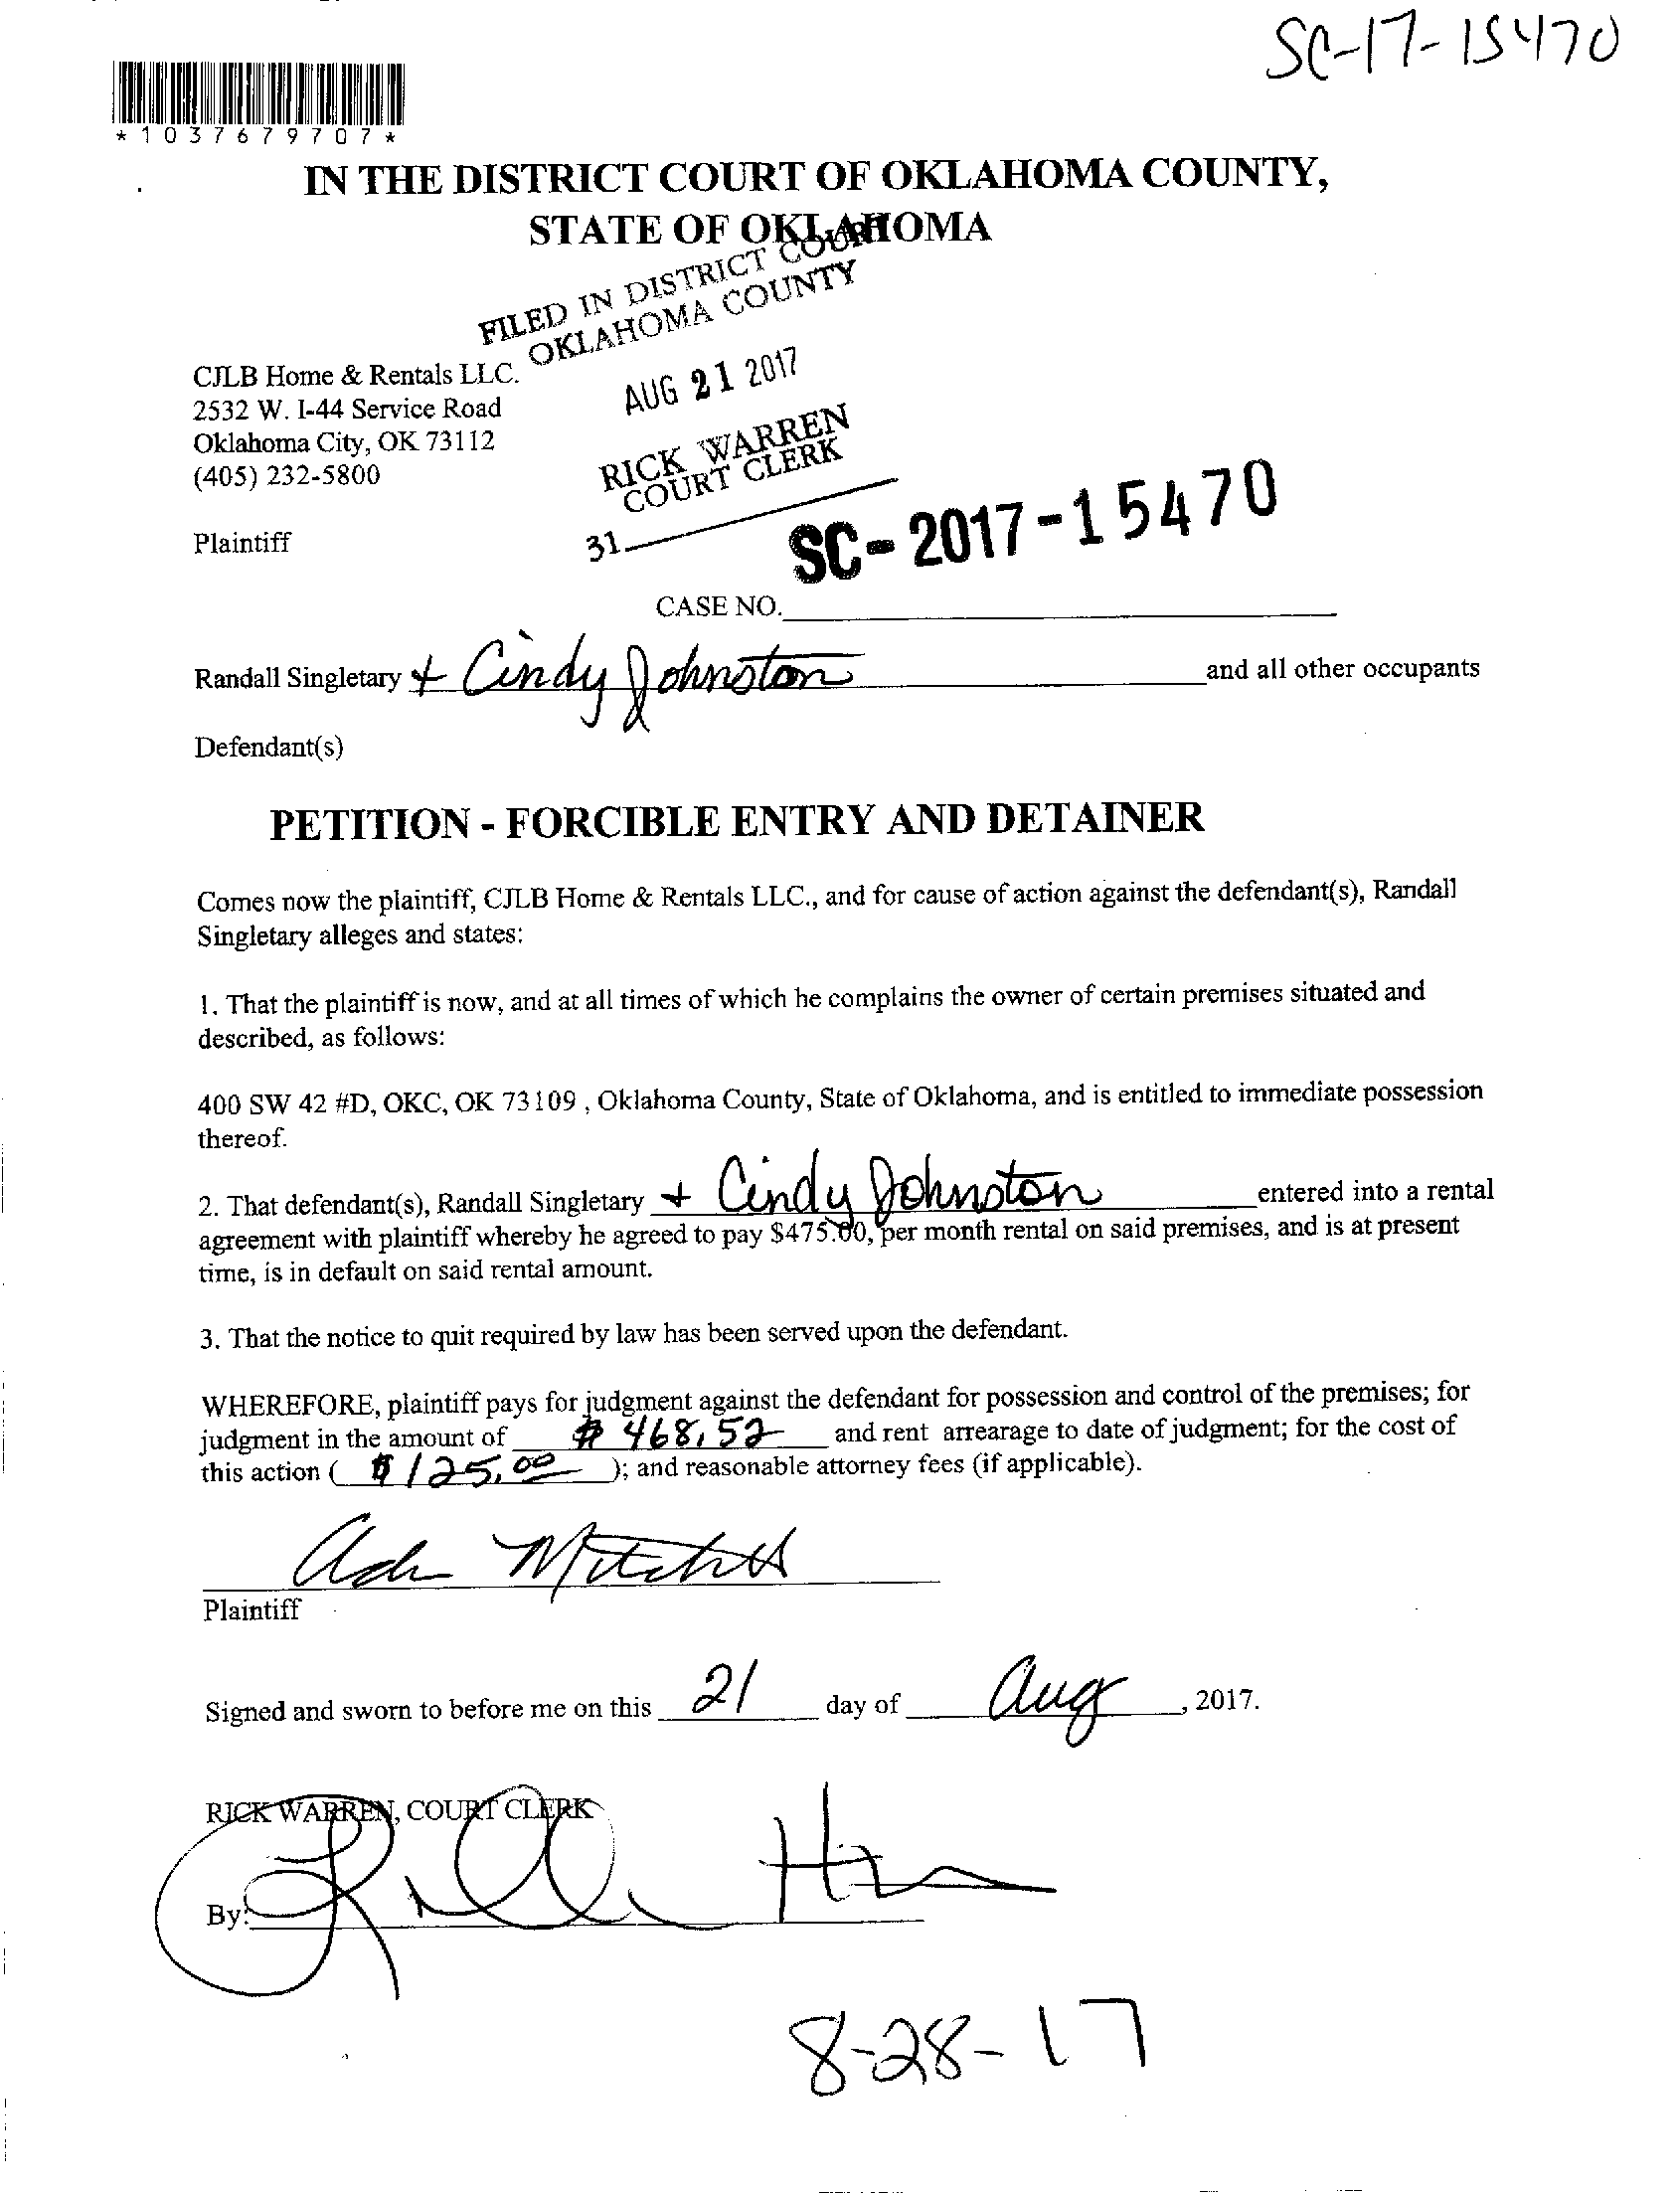 SC-17-15470
*1037679707*
IN THE DISTRICT COURT OF OKLAHOMA COUNTY,
STATE OF OKLAHOMA
FILED IN DISTRICT COURT
OKLAHOMA COUNTY
CJLB Home & Rentals LLC.
2532 W. I-44 Service Road
Oklahoma City, OK 73112
(405) 232-5800
AUG 21 2017
RICK WARREN
COURT CLERK
31
Plaintiff
SC-2017-15470
CASE NO.
Randall Singletary + Cindy Johnston and all other occupants
Defendant(s)
PETITION - FORCIBLE ENTRY AND DETAINER
Comes now the plaintiff, CJLB Home & Rentals LLC., and for cause of action against the defendant(s), Randall
Singletary alleges and states:
1. That the plaintiff is now, and at all times of which he complains the owner of certain premises situated and
described, as follows:
400 SW 42 #D, OKC, OK 73109 , Oklahoma County, State of Oklahoma, and is entitled to immediate possession
thereof.
2. That defendant(s), Randall Singletary + Cindy Johnston entered into a rental
agreement with plaintiff whereby he agreed to pay $475.00, per month rental on said premises, and is at present
time, is in default on said rental amount.
3. That the notice to quit required by law has been served upon the defendant.
WHEREFORE, plaintiff pays for judgment against the defendant for possession and control of the premises; for
judgment in the amount of $ 468.52 and rent arrearage to date of judgment; for the cost of
this action ( $125.00 ); and reasonable attorney fees (if applicable).
Plaintiff
Signed and sworn to before me on this 21 day of Aug, 2017.
RICK WARREN, COURT CLERK
By:
8-28-17